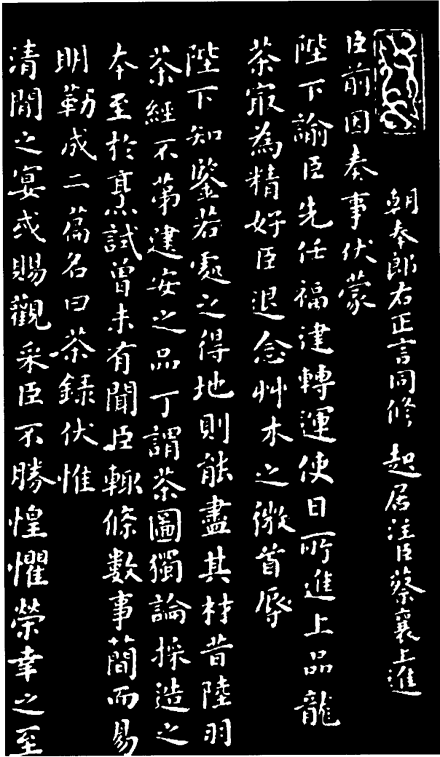 朝奉郎右正言同修起居注臣蔡襄上進
臣前因奏事伏蒙
陛下諭臣先任福建轉運使日所進上品龍
茶冣為精好臣退念艸木之微首辱
陛下知鑒若處之得地則能盡其材昔陸羽
茶經不第建安之品丁謂茶圖獨論採造之
本至於烹試曾未有聞臣輒條數事簡而易
明勒成二篇名曰茶錄伏惟
清閒之宴或賜觀采臣不勝惶懼榮幸之至